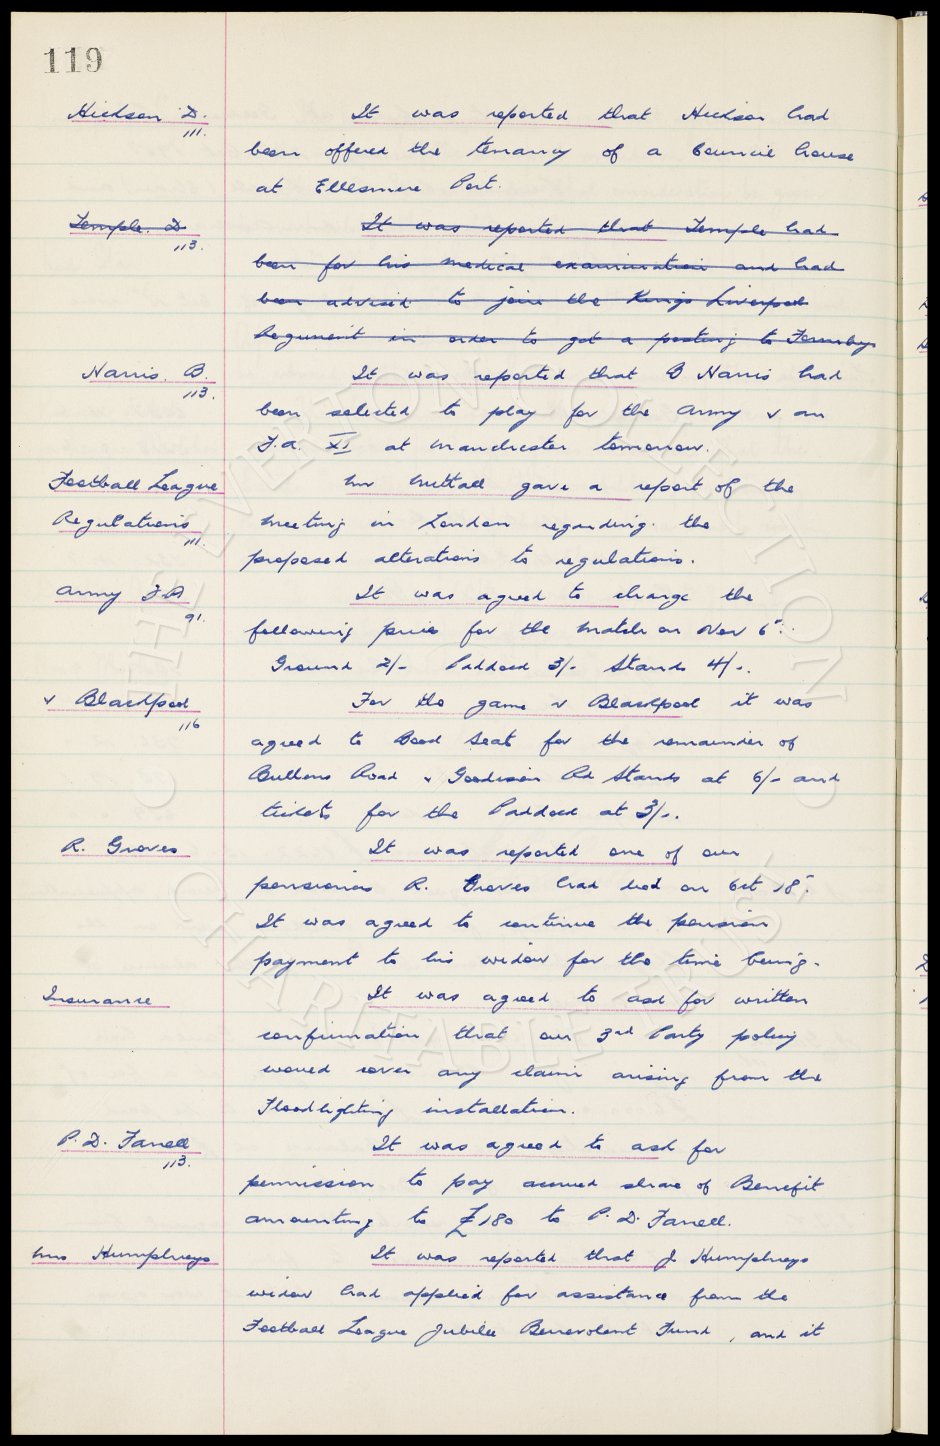 119
Hickson D.
111.
It was reported that Hickson had
been offered the tenancy of a Council house
at Ellesmere Port.
Temple. D
113.
It was reported that Temple had
been for his medical examination and had
been advised to join the Kings Liverpool
Regiment in order to get a posting to Formby
Harris. B.
113.
It was reported that B Harris had
been selected to play for the Army v an
F.A. XI at Manchester tomorrow.
Football League
Regulations
111.
Mr Nuttall gave a report of the
meeting in London regarding the
proposed alterations to regulations.
Army F.A
91.
It was agreed to charge the
following prices for the match on Nov 6".
Ground 2/- Paddock 3/- Stands 4/-.
v Blackpool
116
For the game v Blackpool it was
agreed to Book Seat for the remainder of
Bullens Road & Goodison Rd Stands at 6/- and
tickets for the Paddock at 3/-.
R. Groves
It was reported one of our
pensioners R. Groves had died on Oct 18".
It was agreed to continue the pension
payment to his widow for the time being.
Insurance
It was agreed to ask for written
confirmation that our 3rd Party policy
would cover any claim arising from the
Floodlighting installation.
P. D. Farrell
113.
It was agreed to ask for
permission to pay accrued share of Benefit
amounting to £180 to P. D. Farrell.
Mrs Humphreys
It was reported that J Humphreys
widow had applied for assistance from the
Football League Jubilee Benevolent Fund, and it
THE EVERTON COLLECTION
CHARITABLE TRUST